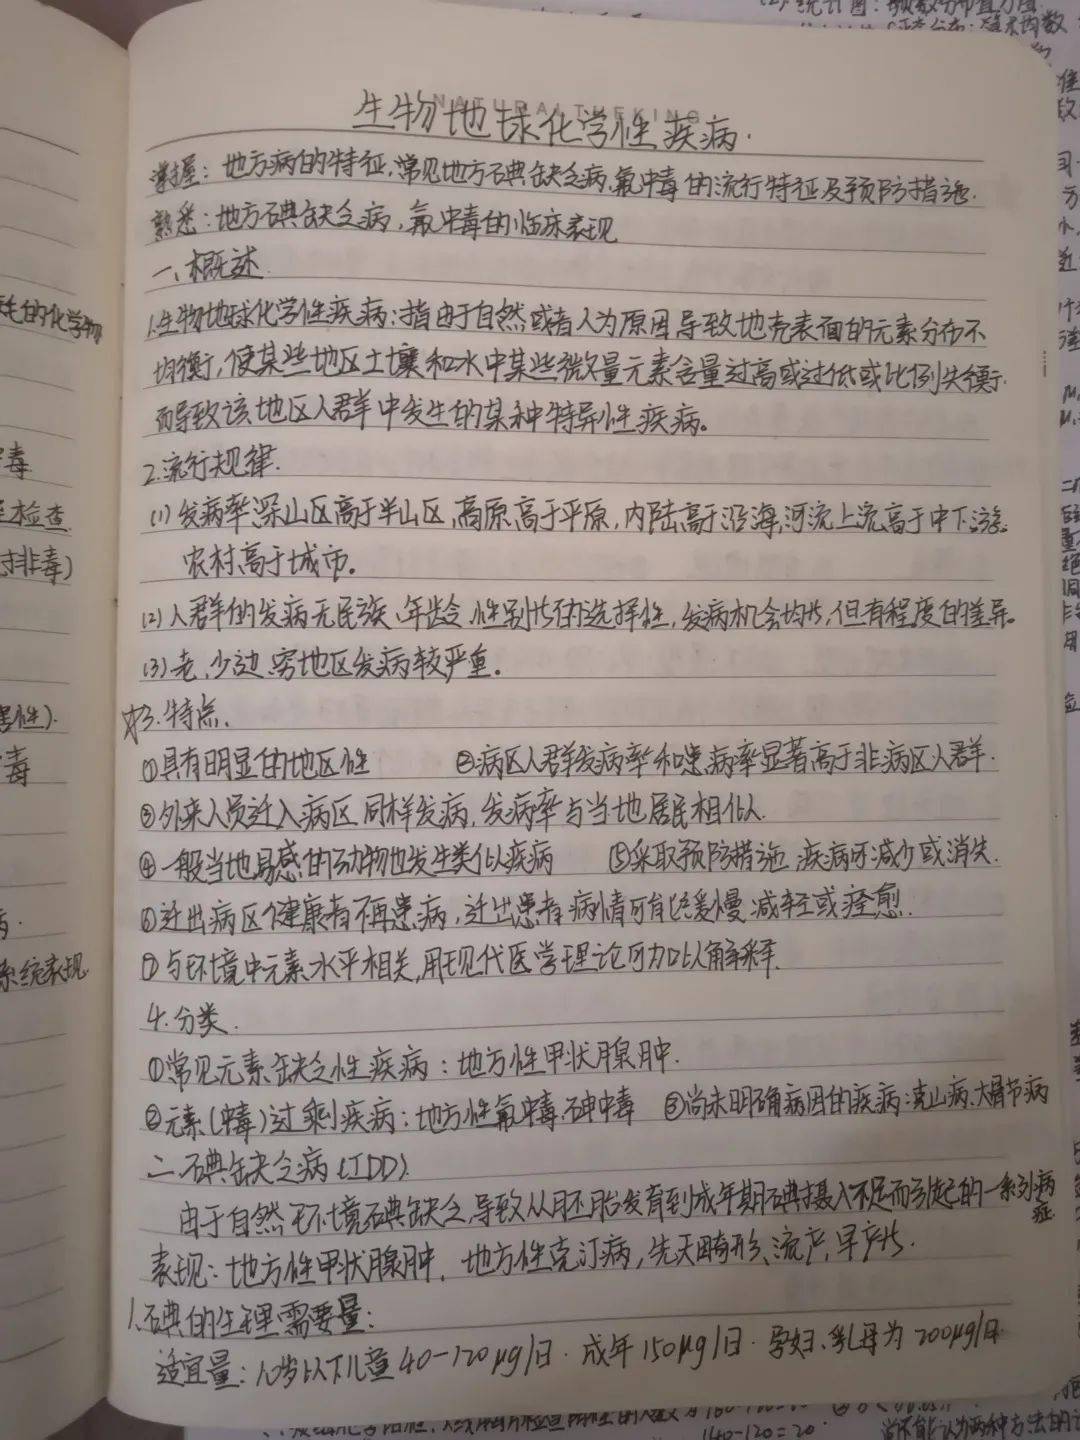 生物地球化学性疾病.
掌握：地方病的特征,常见地方碘缺乏病,氟中毒的流行特征及预防措施.
熟悉：地方碘缺乏病，氟中毒的临床表现
一、概述.
1.生物地球化学性疾病：指由于自然或者人为原因导致地壳表面的元素分布不
均衡，使某些地区土壤和水中某些微量元素含量过高或过低或比例失衡.
而导致该地区人群中发生的某种特异性疾病。
2.流行规律.
(1)发病率深山区高于半山区,高原高于平原,内陆高于沿海,河流上流高于中下游.
农村高于城市。
(2)人群的发病无民族、年龄、性别等的选择性，发病机会均等,但有程度的差异。
(3)老、少、边、穷地区发病较严重。
3.特点.
①具有明显的地区性 ②病区人群发病率和患病率显著高于非病区人群.
③外来人员迁入病区同样发病，发病率与当地居民相似.
④一般当地易感的动物也发生类似疾病 ⑤采取预防措施,疾病可减少或消失.
⑥迁出病区健康者不再患病，迁出患者病情可有缓慢减轻或痊愈.
⑦与环境中元素水平相关,用现代医学理论可加以解释.
4.分类.
①常见元素缺乏性疾病：地方性甲状腺肿.
②元素(中毒)过剩疾病：地方性氟中毒、砷中毒 ③尚未明确病因的疾病:克山病、大骨节病
二.碘缺乏病(IDD).
由于自然环境碘缺乏,导致从胚胎发育到成年期碘摄入不足而引起的一系列病
症
表现：地方性甲状腺肿、地方性克汀病，先天畸形、流产、早产等.
1.碘的生理需要量:
适宜量：10岁以下儿童40-120μg/日.成年150μg/日.孕妇、乳母为200μg/日.
毛的化学物
中毒.
检查
非毒)
害性).
毒
系统表现.
140-120=20